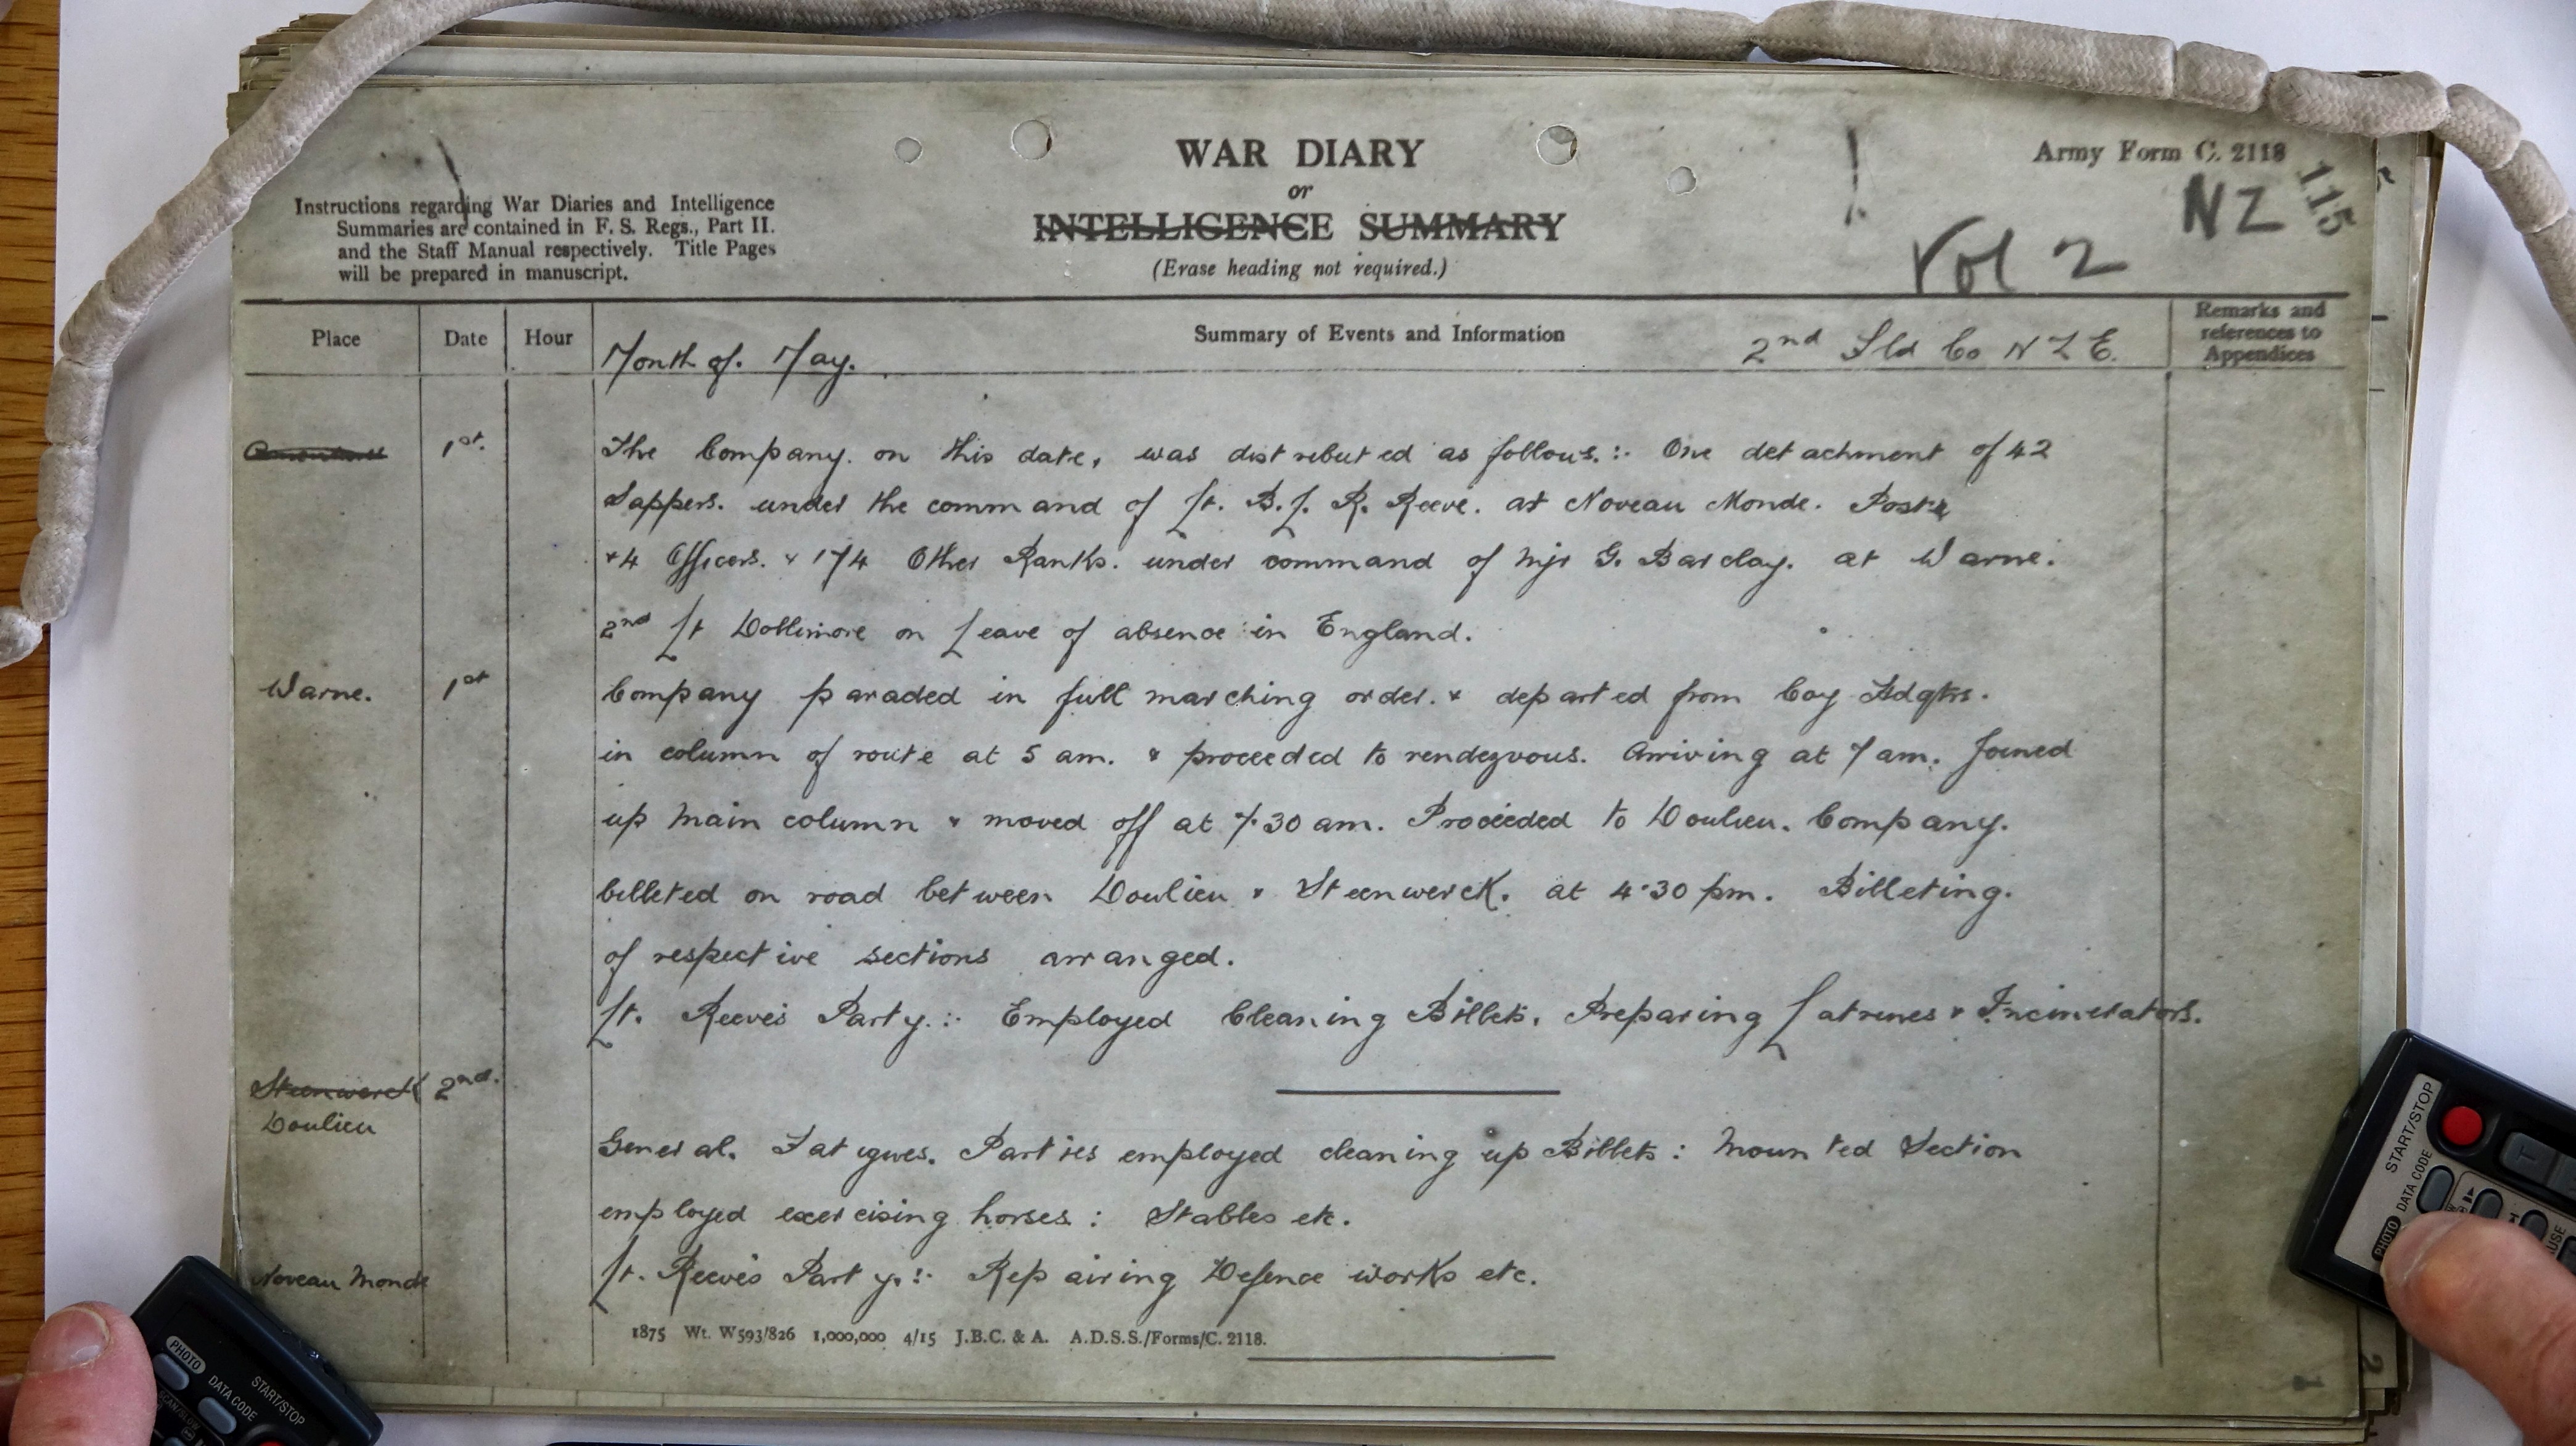 WAR DIARY
or
INTELLIGENCE SUMMARY
(Erase heading not required.)
Army Form C. 2118
NZ
115
Vol 2
Instructions regarding War Diaries and Intelligence
Summaries are contained in F. S. Regs., Part II.
and the Staff Manual respectively. Title Pages
will be prepared in manuscript.
Place Date Hour Summary of Events and Information Remarks and
references to
Appendices
Month of. May.
2nd Fld Co N Z E.
1st. The Company. on this date, was distributed as follows.:- One detachment of 42
Sappers. under the command of Lt. B. J. R. Reeve. at Noveau Monde. Post
+4 Officers. & 174 Other Ranks. under command of Mjr G. Barclay. at Warne.
2nd Lt Dollimore on Leave of absence in England.
Warne. 1st Company paraded in full marching order. & departed from Coy Hdqtrs.
in column of route at 5 am. & proceeded to rendezvous. Arriving at 7 am. Joined
up main column & moved off at 7.30 am. Proceeded to Doulieu. Company.
billeted on road between Doulieu & Steenwerck. at 4.30 pm. Billeting.
of respective sections arranged.
Lt. Reeve's Party.:- Employed Cleaning Billets. Preparing Latrines & Incinerators.
Steenwerck 2nd.
Doulieu
General. Fatigues. Parties employed cleaning up Billets: Mounted Section
employed exercising horses: Stables etc.
Noveau Monde Lt. Reeve's Party.:- Repairing Defence works etc.
1875 Wt. W593/826 1,000,000 4/15 J.B.C. & A. A.D.S.S./Forms/C. 2118.
1
2
START/STOP
DATA CODE
PHOTO
PHOTO
DATA CODE
START/STOP
SCAN/SLOW
T